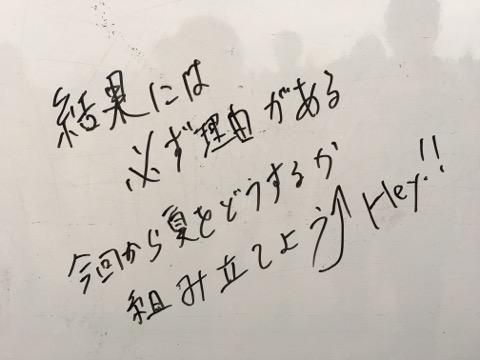 結果には
必ず理由がある
今回から夏をどうするか
組み立てよう↑ Hey!!